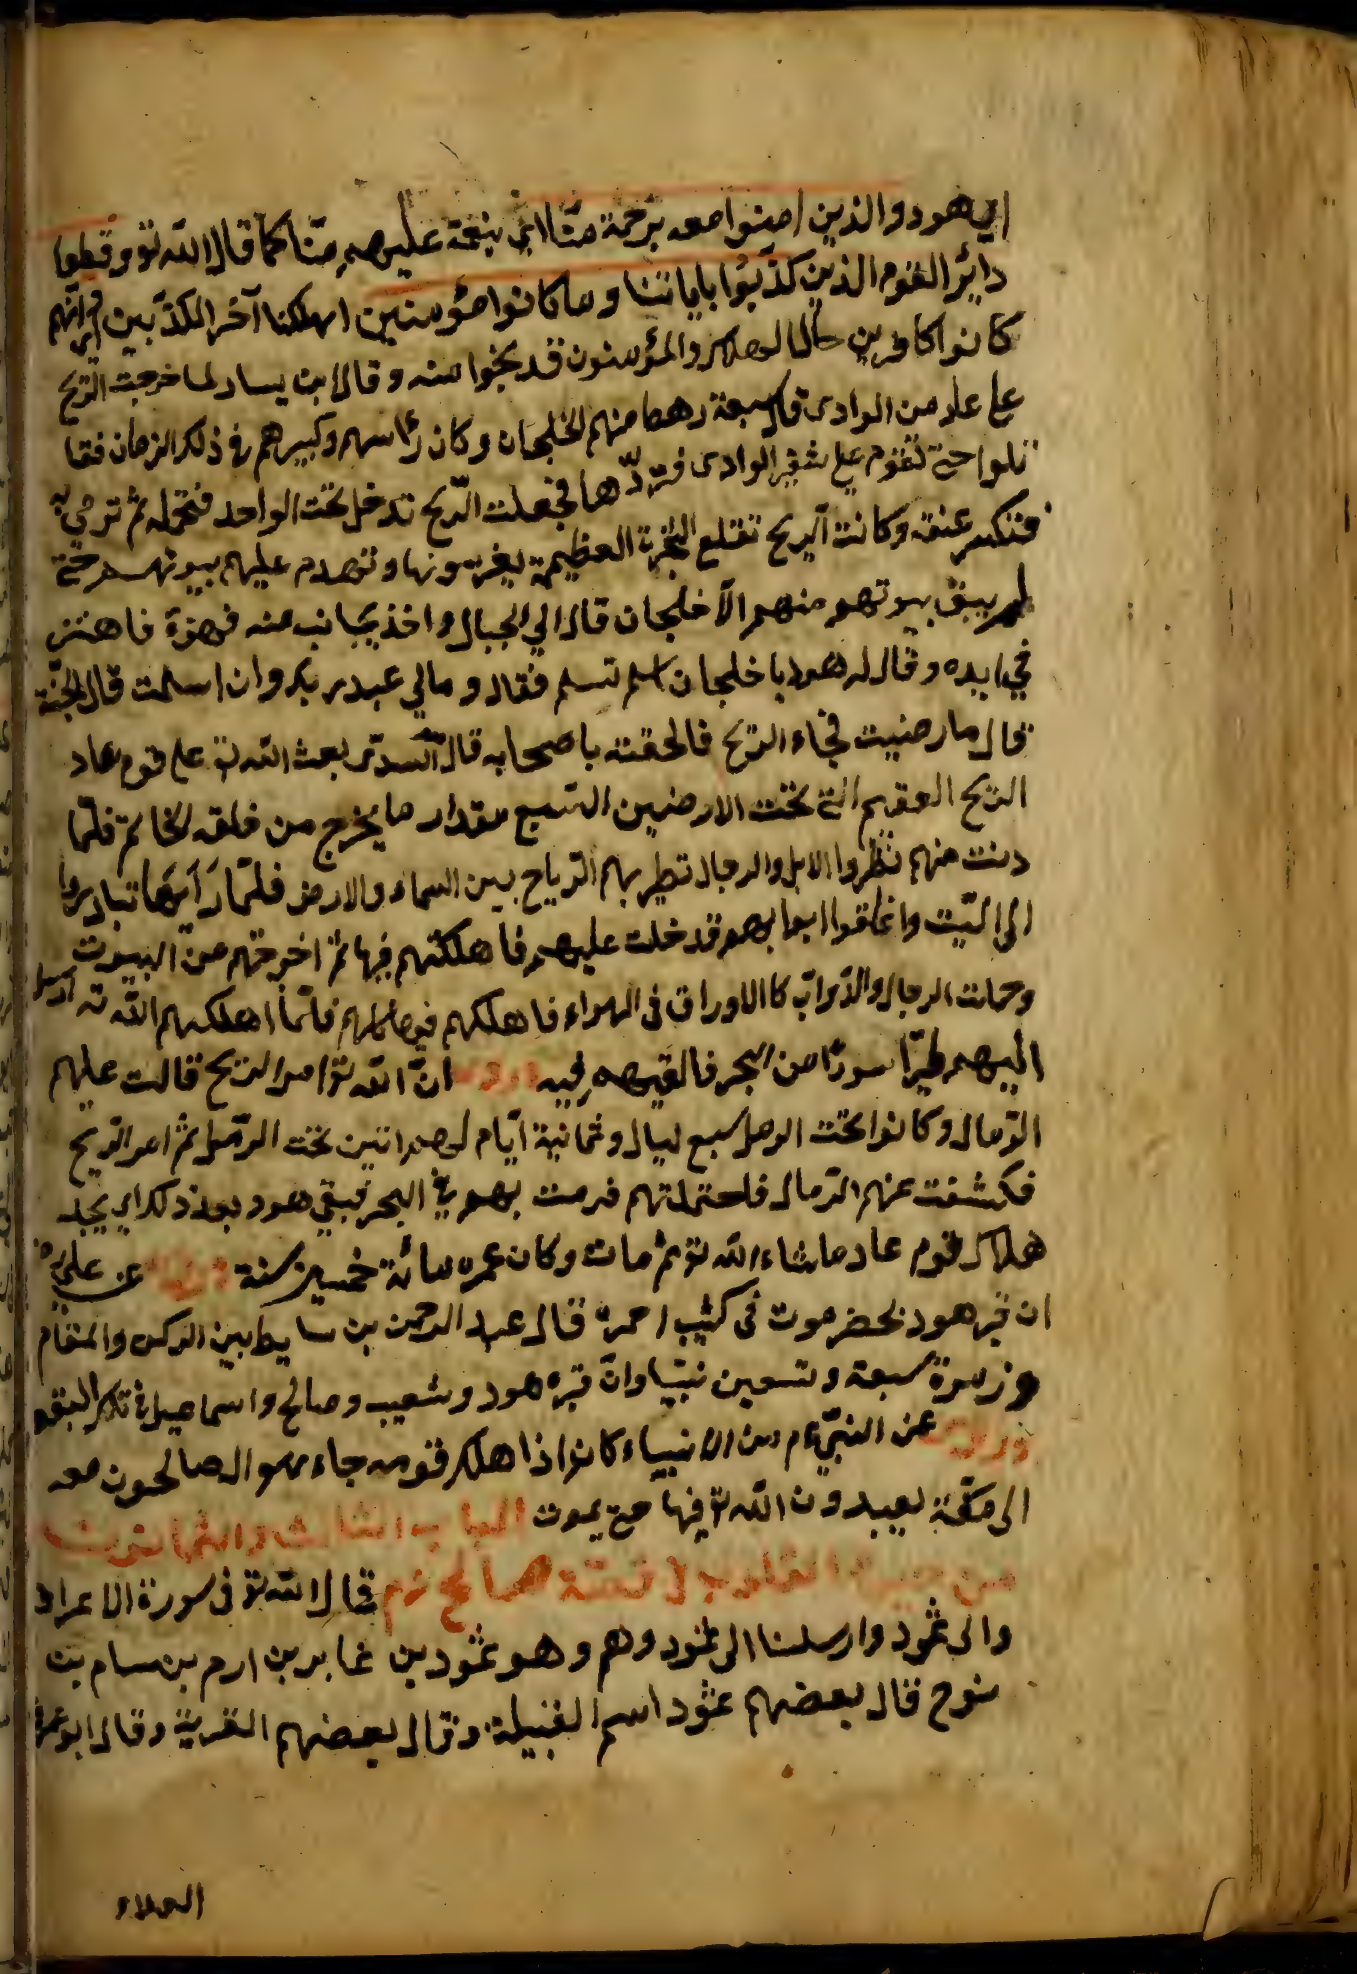 اي هود والذين امنوا معه برحمة منّا اي بنعمة عليهم منّا كما قال الله تع وقطعنا
دابر القوم الذين كذّبوا باياتنا وما كانوا مؤمنين اهلكنا آخر المكذّبين اي انهم
كانوا كافرين والمؤمنون قد نجوا منه وقال ابن يسار لما خرجت الرّيح
على عاد من الوادى قال سبعة رهط منهم الخلجان وكان رأسهم وكبيرهم فى ذلك الزمان فقا
تلوا حتى نقوم على شفير الوادى فنردّها فجعلت الرّيح تدخل تحت الواحد فتحمله ثم ترمي به
فتنكسر عنقه وكانت الريح تقلع الشجرة العظيمة بعروقها وتهدم عليهم بيوتهم حتى
لم يبق بيوتهم منهم الاّ خلجان قال الي الجبال واخذ بجانب منه فهزّه فاهتز
في يده وقال له هود يا خلجان اسلم تسلم فقال ومالي عند ربك وان اسلمت قال الجنّة
قال ما رضيت فجاء الريح فالحقته باصحابه قال السدّى بعث الله تع على قوم عاد
الريح العقيم التى تحت الارضين السّبع مقدار ما يخرج من حلقه الخاتم فلمّا
دنت منهم نظروا الابل والرجال تطير بهم الرّياح بين السماء والارض فلمّا رآيها تبادروا
الى البيت واغلقوا ابوابهم فدخلت عليهم فاهلكتهم فيها ثم اخرجتهم من البيوت
وحملت الرجال والدّوابّ كالاوراق فى الهواء فاهلكهم فلمّا اهلكهم الله تع ارسل
اليهم طيرًا سودًا من البحر فالقيهم فيه وروى انّ الله تع امر الريح قالت عليهم
الرّمال وكانوا تحت الرمل سبع ليال وثمانية ايّام لهم انين تحت الرّمل ثم امر الرّيح
فكشفت عنهم الرّمال فاحتملتهم فرمت بهم فى البحر فبقي هود بعد ذلك
هلاك قوم عاد ما شاء الله تع ثم مات وكان عمره مائة خمسين سنة وروى عن علي رض
ان قبر هود بحضرموت فى كثيب احمر قال عبد الرحمن بن سابط بين الركن والمقام
وزمزم تسعة وتسعين نبيّا وانّ قبر هود وشعيب وصالح واسماعيل فى تلك البقعة
وروى عن النبيّ عم من الانبياء كانوا اذا هلك قومه جاء هو والصالحون معه
الى مكّة يعبدون الله تع فيها حتى يموت الباب الثالث والثمانون
من القلوب فى قصّة صالح عم قال الله تع فى سورة الاعراف
والى ثمود وارسلنا الى ثمود وهم وهو ثمود بن عابر بن ارم بن سام بن
نوح قال بعضهم ثمود اسم القبيلة وقال بعضهم القرية وقال ابو عمرو
العلاء